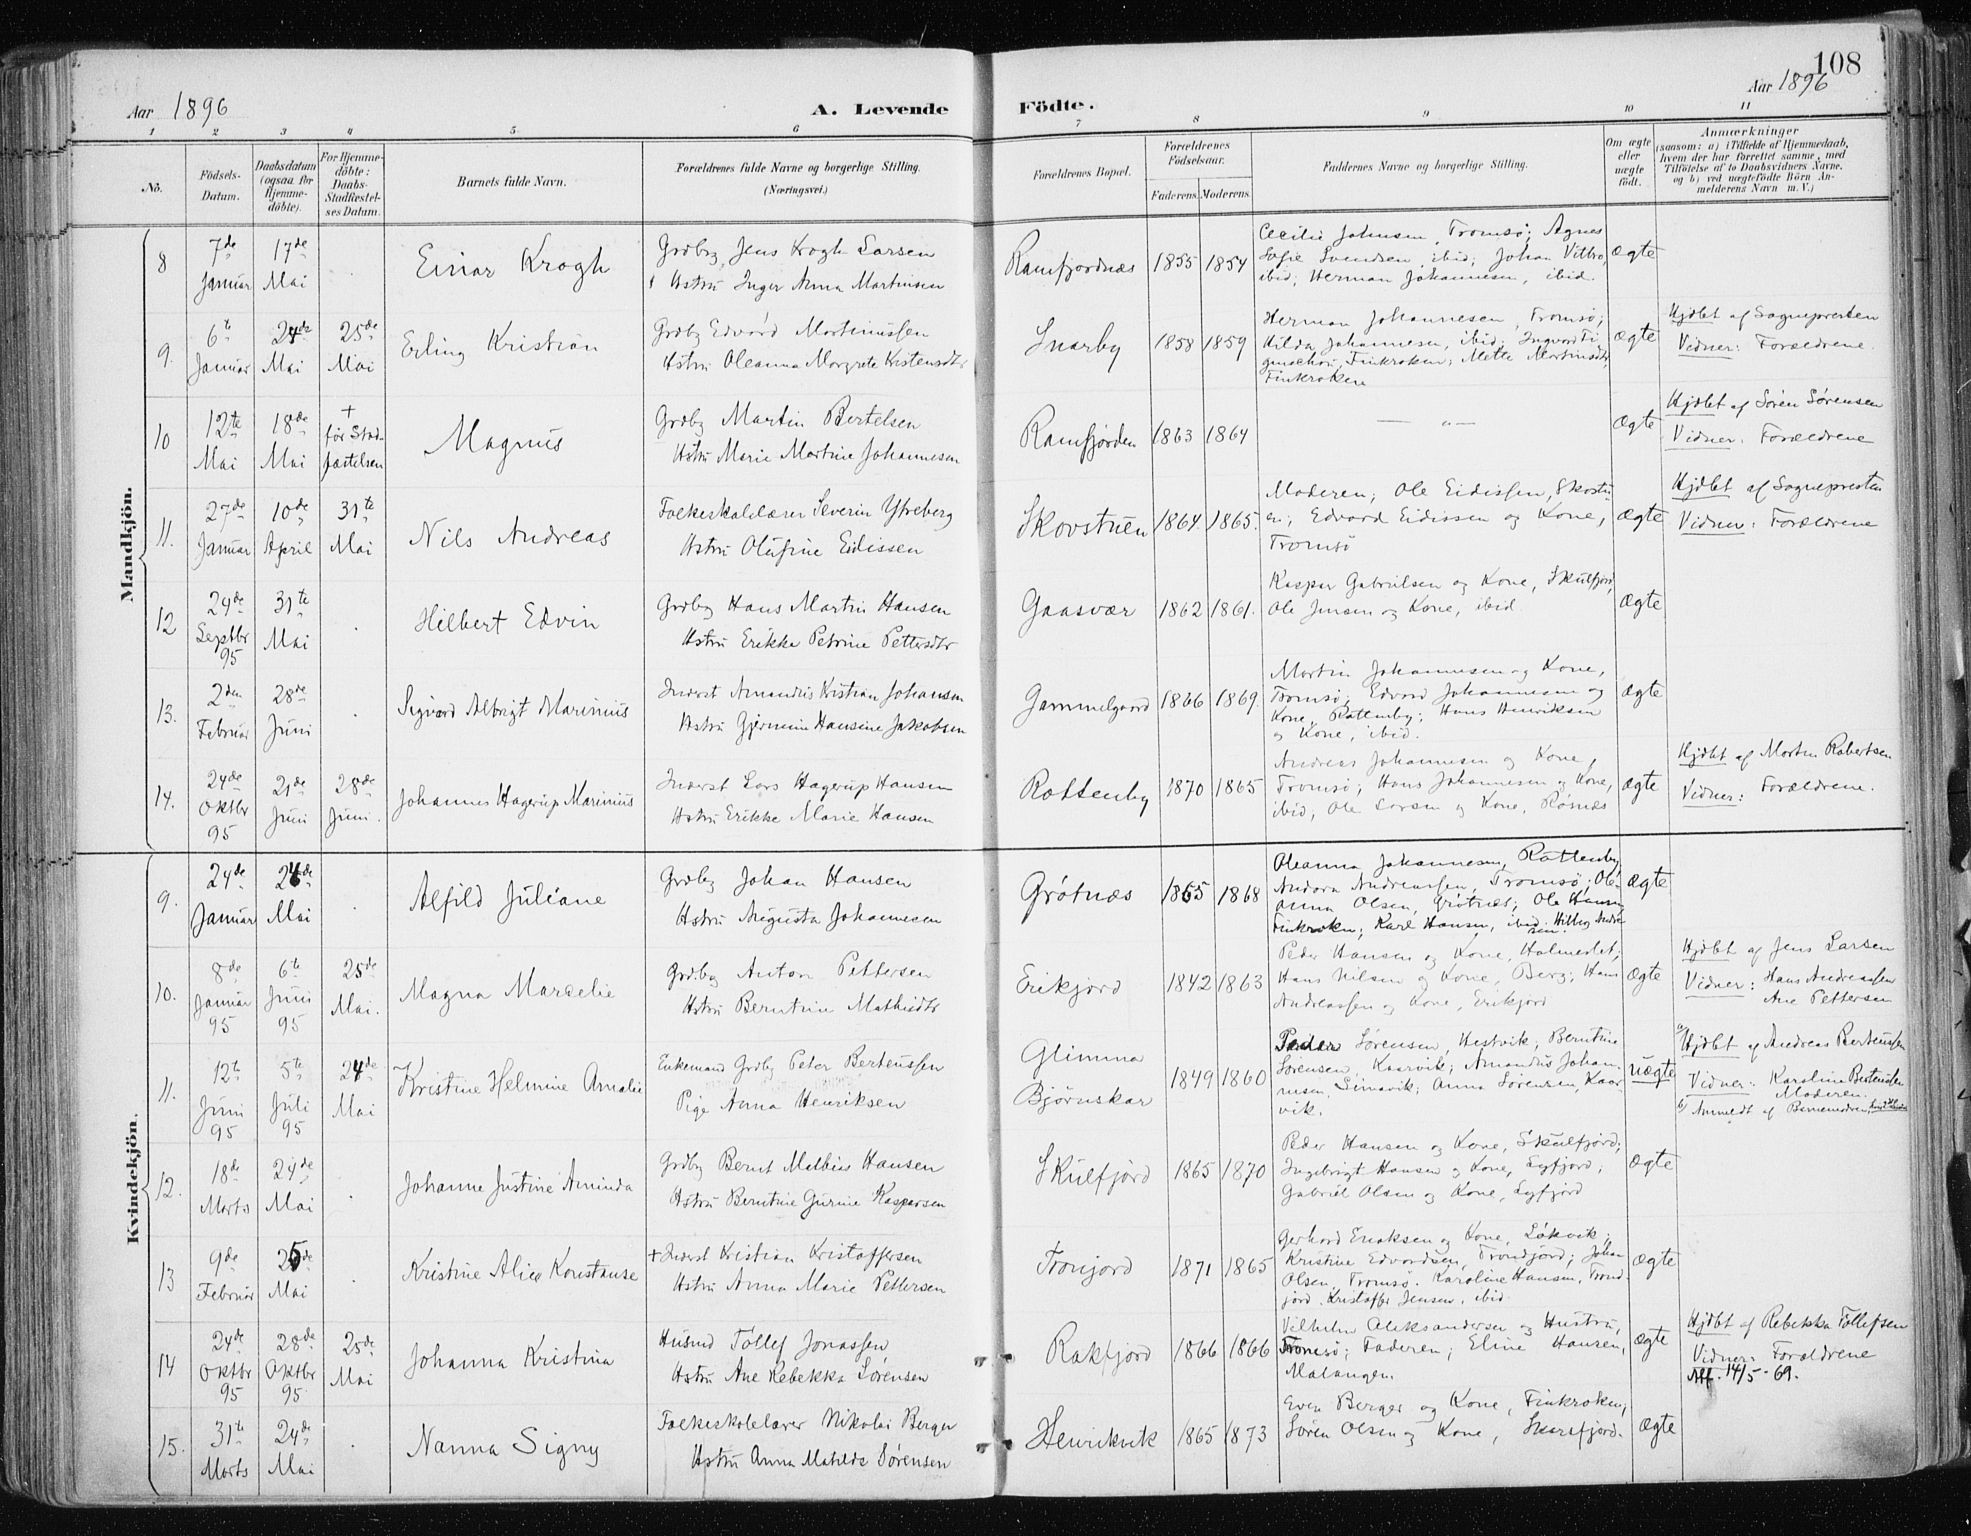 108
Aar 1896
A. Levende Födte.
Aar 1896
1 2 3 4 5 6 7 8 9 10 11
No.
Födsels-
Datum.
Daabsdatum
(ogsaa for
Hjemme-
döbte).
For Hjemme-
döbte:
Daabs-
Stadfæstel-
ses Datum.
Barnets fulde Navn.
Forældrenes fulde Navne og borgerlige Stilling.
(Næringsvei.)
Forældrenes Bopæl.
Forældrenes
Födselsaar.
Faderens. Moderens.
Faddernes Navne og borgerlige Stilling.
Om ægte
eller
uægte
födt.
Anmærkninger
(saasom: a) i Tilfælde af Hjemmedaab,
hvem der har forrettet samme, med
Tilföielse af to Daabsvidners Navne,
og b) ved uægtefödte Börn An-
melderens Navn m. V.)
Mandkjön.
8
7de
Januar
17de
Mai
Einar Krogh
Grdbr. Jens Krogh Larsen
Hstru Inger Anna Martinsen
Ramfjordnæs
1855 1854
Cecilie Johnsen, Tromsø; Agnes
Sofie Svendsen, ibid; Johan Vitbro,
ibid; Herman Johannesen, ibid.
ægte
9.
6te
Januar
24de
Mai
25de
Mai
Erling Kristian
Grdbr Edvard Martinussen
Hstru Oleanna Margrete Kistensdtr
Snarby
1858 1859
Herman Johannesen, Tromsø;
Hilda Johannesen, ibid; Ingvard
Finkroken; Mette Martinsdtr,
Finkroken
ægte
Hjdbt af Sognepresten
Vidner: Forældrene.
10
12te
Mai
18de
Mai
+
før Stad-
fæstelsen
Magnus
Grdbr Martin Bertelsen
Hstru Marie Martine Johannesen
Ramfjorden
1863 1864
— „ —
ægte
Hjdbt af Søren Sørensen
Vidner: Forældrene
11.
27de
Januar
10de
April
31te
Mai
Nils Andreas
Folkeskolelærer Severin Ytreberg
Hstru Olufine Eidissen
Skovstuen
1864 1865.
Moderen; Ole Eidissen, Skovstu-
en; Edvard Eidissen og Kone,
Tromsø
ægte
Hjdbt af Sognepresten
Vidner: Forældrene
12
29de
Septbr
95
31te
Mai
Hilbert Edvin
Grdbr Hans Martin Hansen
Hstru Erikke Petrine Pettersdtr
Gaasvær
1862 1861.
Kaspar Gabrielsen og Kone, Skulfjord,
Ole Jensen og Kone, ibid.
ægte
13.
2den
Februar
28de
Juni
Sigvard Albrigt Marinius
Inderst Amandus Kristian Johansen
Hstru Gjermine Hansine Jakobsen
Gammelgaard
1866 1869.
Martin Johannesen og Kone,
Tromsø; Edvard Johannesen og
Kone, Rottenby; Hans Henriksen
og Kone, ibid.
ægte
14.
24de
Oktbr
95
21de
Juni
28de
Juni.
Johannes Hagerup Marinius
Inderst Lars Hagerup Hansen
Hstru Erikke Marie Hansen
Rottenby
1870 1865
Andreas Johannesen og Kone,
Tromsø; Hans Johannesen og Kone,
ibid, Ole Larsen og Kone, Røsnæs
ægte
Hjdbt af Morten Robertsen
Vidner: Forældrene.
Kvindekjön.
9.
24de
Januar
26de
Mai
Alfild Juliane
Grdbr Johan Hansen
Hstru Augusta Johannesen
Grøtnæs
1865 1868
Oleanna Johannesen, Rottenby,
Andora Andreassen, Tromsø; Ole-
anna Olsen, Grøtnæs; Ole Hansen
Finkroken; Karl Hansen, ibid.
ægte
10.
8de
Januar
95
6te
Juni
95
25de
Mai.
Magna Marcelie
Grdbr Anton Pettersen
Hstru Berntine Mathisdtr
Erikjord
1842 1863
Peder Hansen og Kone, Holmeslet;
Hans Nilsen og Kone, Berg; Hans
Andreassen og Kone, Erikjord
ægte
Hjdbt af Jens Larsen
Vidner: Hans Andreassen
Ane Pettersen
11.
12te
Juni
95
5te
Juli
95
24de
Mai
Kristine Helmine Amalie
Enkemand Grdbr Peter Berteussen
Pige Anna Henriksen
Glimma
Bjørnskar
1849 1860
Peder Sørensen, Hestvik; Berntine
Sørensen, Kaarvik; Amandus Johan-
nesen, Simavik; Anna Sørensen, Kaar-
vik.
uægte
a/ Hjdbt af Andreas Berteussen
Vidner: Karoline Berteussen
Moderen.
b/ Anmeldt af Barnemoderen
12.
18de
Marts
24de
Mai
Johanne Justine Aminda
Grdbr Bernt Mathias Hansen
Hstru Berntine Gurine Kaspersen
Skulfjord
1865 1870
Peder Hansen og Kone, Skulfjord;
Ingebrigt Hansen og Kone, Lyfjord;
Gabriel Olsen og Kone, Lyfjord
ægte
13
9de
Februar
25de
Mai
Kristine Alice Konstanse
+ Inderst Kristian Kristoffersen
Hstru Anna Marie Pettersen
Tronjord
1871 1865
Gerhard Eriksen og Kone, Løkvik;
Kristine Edvardsen, Trondjord; Johan
Olsen, Tromsø. Karoline Hansen, Trond-
jord. Kristoffer Jensen, ibid.
ægte
14
24de
Oktbr
95
28de
Oktbr
95
25de
Mai
Johanna Kristina
Husmd Tollef Jonassen
Hstru Ane Rebekka Sørensen
Rakfjord
1866 1866
Vilhelm Aleksandersen og Hustru,
Tromsø; Faderen; Eline Hansen,
Malangen.
ægte
Hjdbt af Rebekka Tollefsen
Vidner: Forældrene
Att. 14/5-69.
15.
31te
Marts
24de
Mai
Nanna Signy
Folkeskolelærer Nikolai Berger
Hstru Anna Matilde Sørensen
Henrikvik
1865 1873
Even Berger og Kone, Finkroken;
Søren Olsen og Kone, Skarsfjord.
ægte